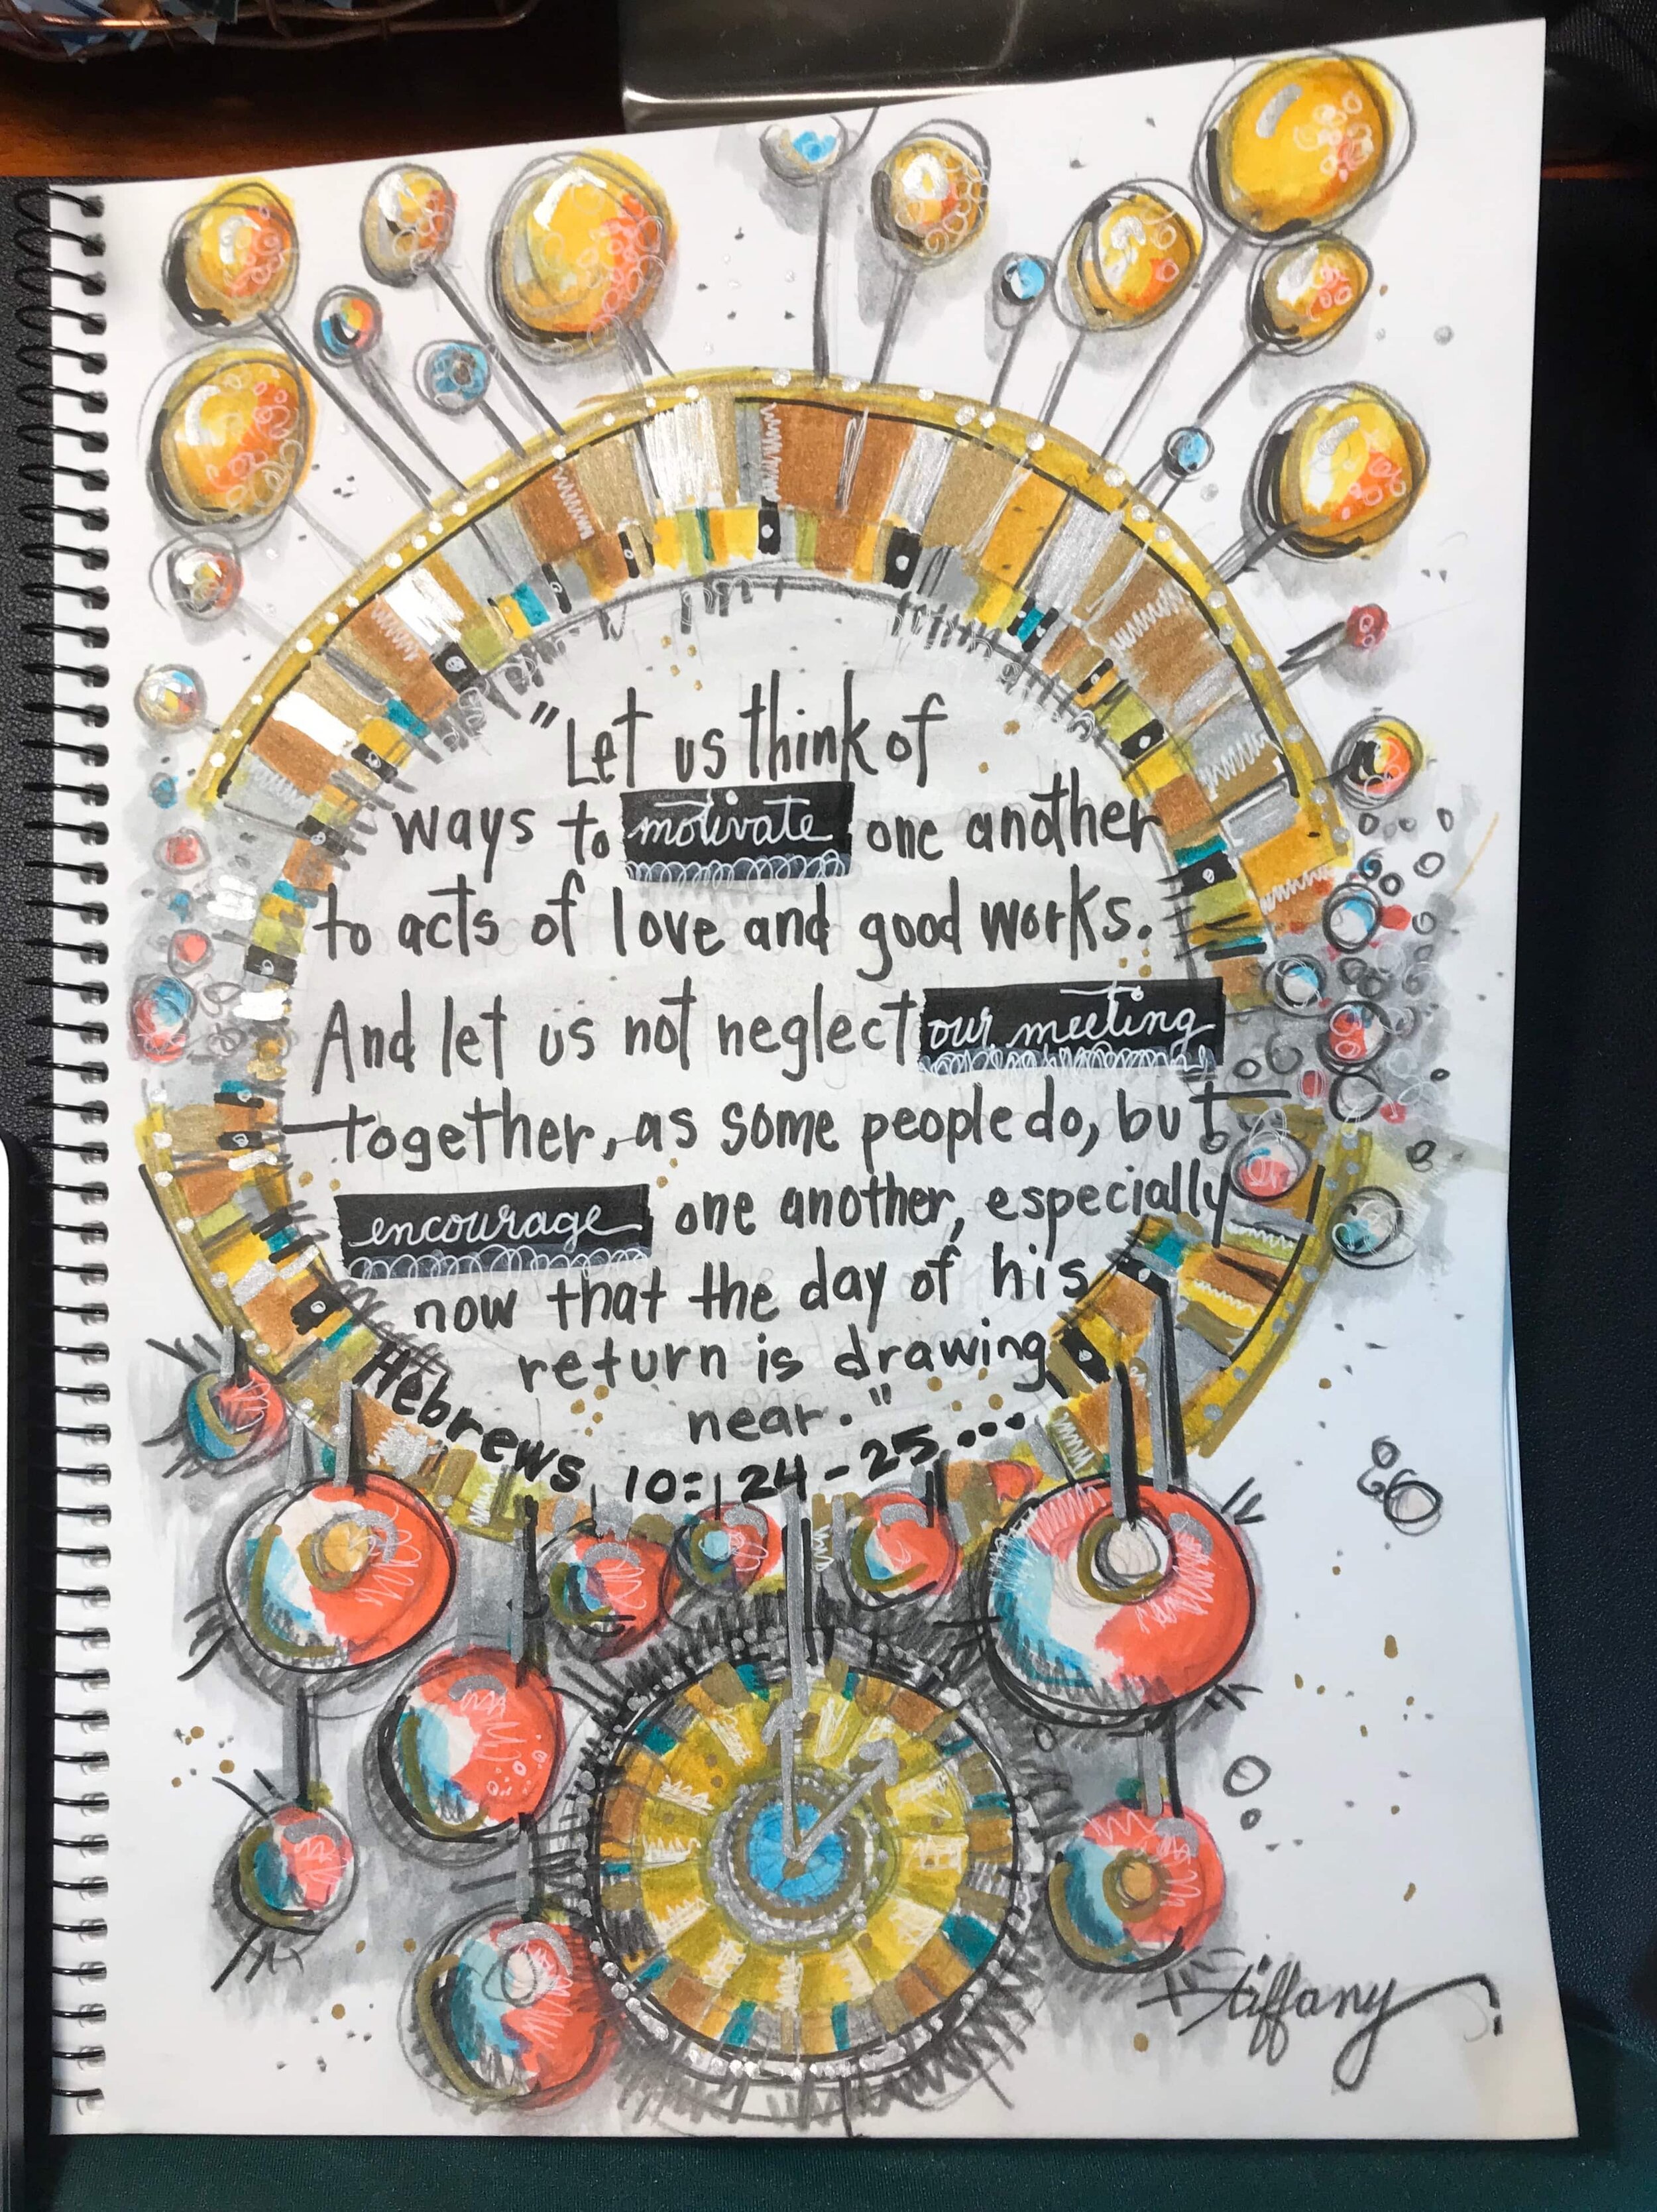 "Let us think of
ways to motivate one another
to acts of love and good works.
And let us not neglect our meeting
together, as some people do, but
encourage one another, especially
now that the day of his
return is drawing
near."
Hebrews 10:24-25...
Tiffany